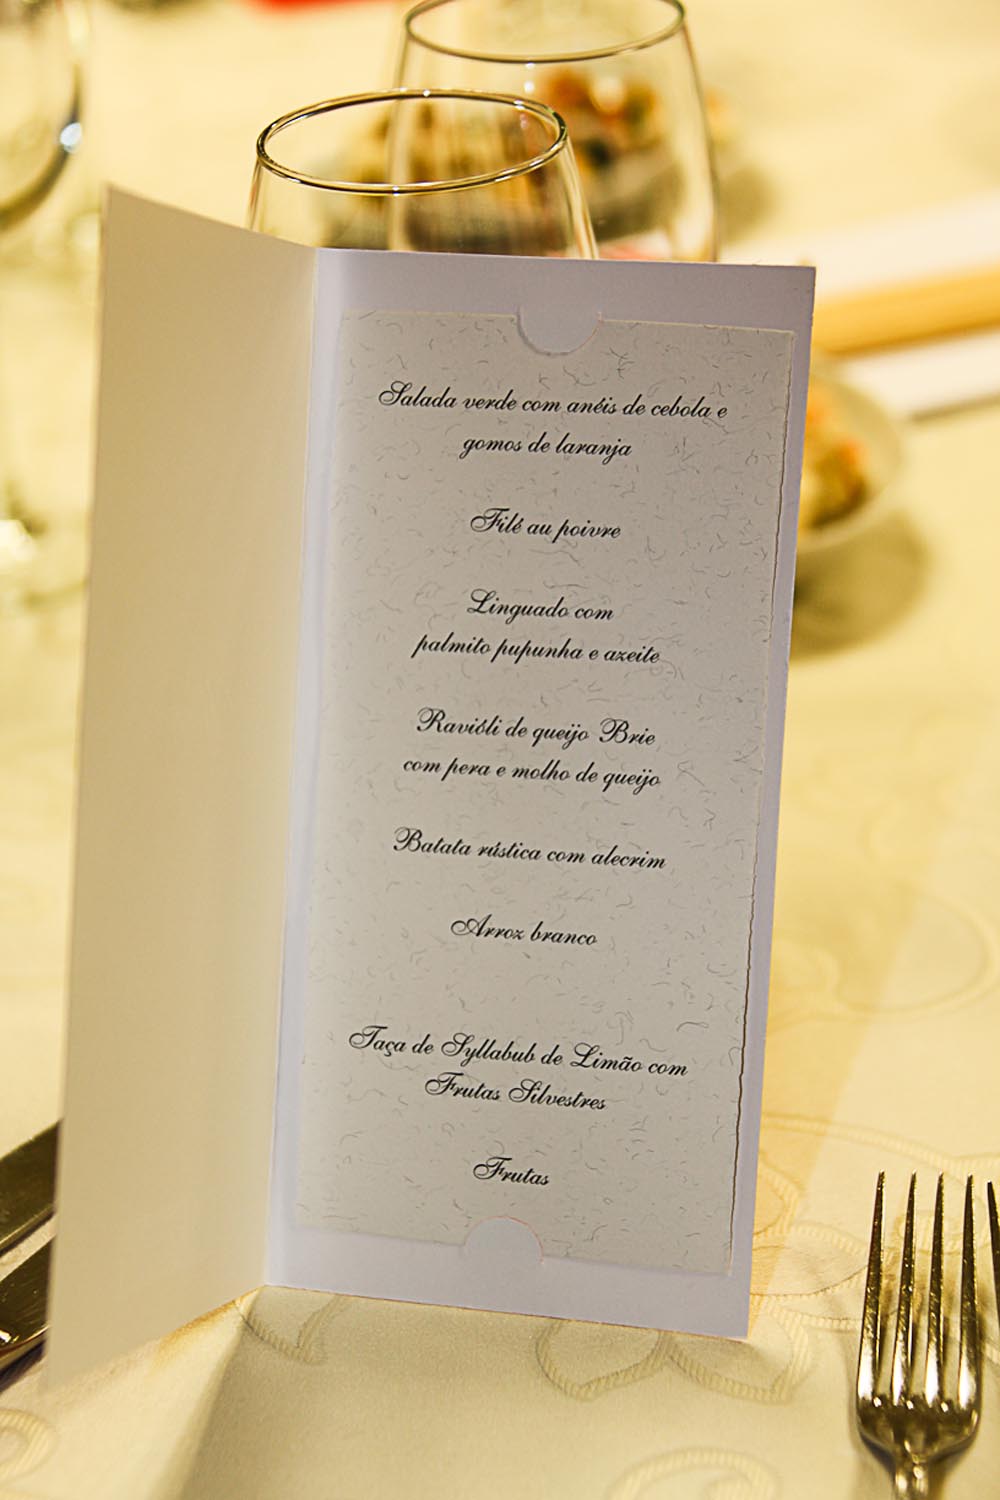 Salada verde com anéis de cebola e
gomos de laranja
Filé au poivre
Linguado com
palmito pupunha e azeite
Ravióli de queijo Brie
com pera e molho de queijo
Batata rústica com alecrim
Arroz branco
Taça de Syllabub de Limão com
Frutas Silvestres
Frutas